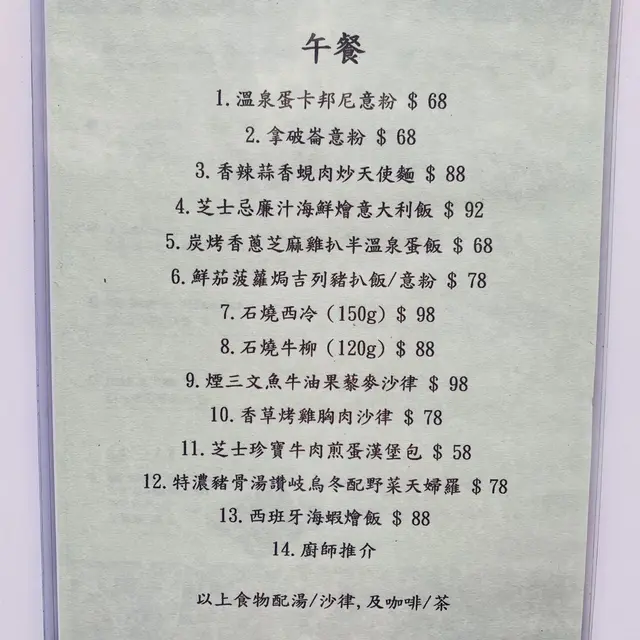 午餐
1. 溫泉蛋卡邦尼意粉 $ 68
2. 拿破崙意粉 $ 68
3. 香辣蒜香蜆肉炒天使麵 $ 88
4. 芝士忌廉汁海鮮燴意大利飯 $ 92
5. 炭烤香蔥芝麻雞扒半溫泉蛋飯 $ 68
6. 鮮茄菠蘿焗吉列豬扒飯/意粉 $ 78
7. 石燒西冷 (150g) $ 98
8. 石燒牛柳 (120g) $ 88
9. 煙三文魚牛油果藜麥沙律 $ 98
10. 香草烤雞胸肉沙律 $ 78
11. 芝士珍寶牛肉煎蛋漢堡包 $ 58
12. 特濃豬骨湯讚岐烏冬配野菜天婦羅 $ 78
13. 西班牙海蝦燴飯 $ 88
14. 廚師推介
以上食物配湯/沙律, 及咖啡/茶